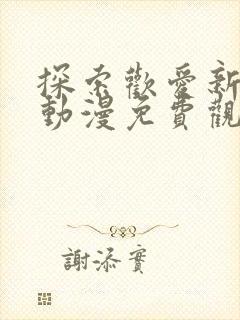 探索歡愛新
動漫免費觀
謝添實